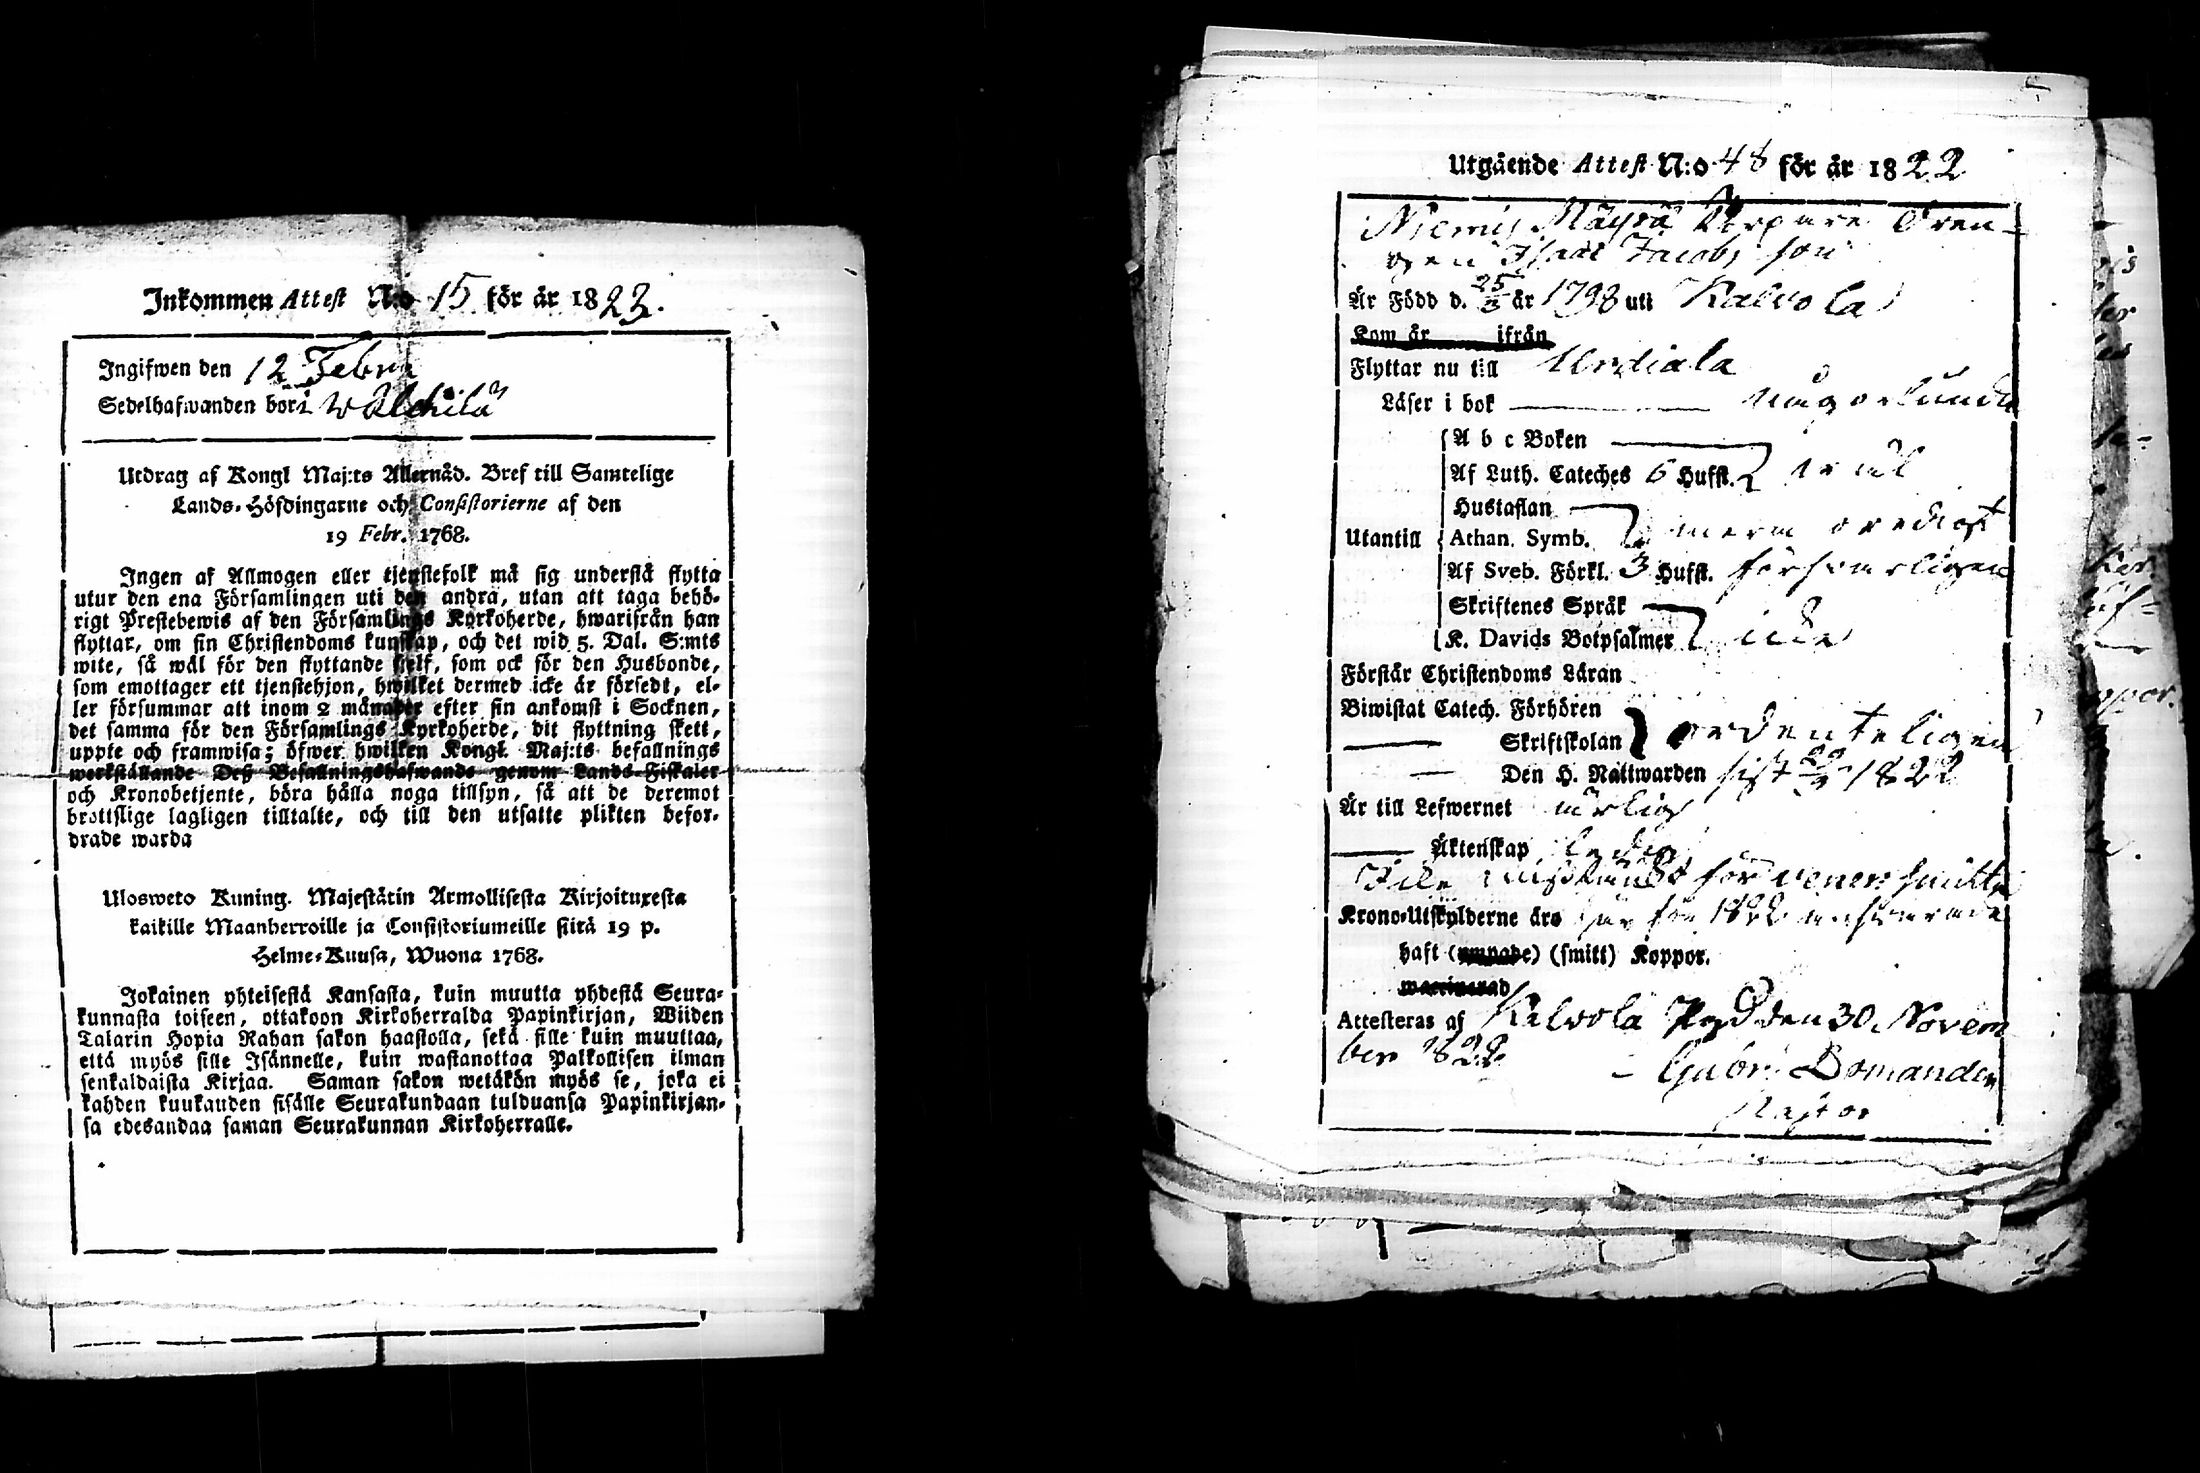 Inkommen Attest N:o 15 för år 1823.
Ingifwen den 12 Febru
Sedelhafwanden bor i Wälckilä
Utdrag af Kongl Maj:ts Allernåd. Bref till Samtelige
Lands-Höfdingarne och Consistorierne af den
19 Febr. 1768.
Ingen af Allmogen eller tjenstefolk må sig understå flytta
utur den ena Församlingen uti den andra, utan att taga behö-
rigt Prestebewis af den Församlings Kyrkoherde, hwarifrån han
flyttar, om sin Christendoms kunskap, och det wid 5. Dal. S:mts
wite, så wäl för den flyttande sjelf, som ock för den Husbonde,
som emottager ett tjenstehjon, hwilket dermed icke är försedt, el-
ler försummar att inom 2 månader efter sin ankomst i Socknen,
det samma för den Församlings Kyrkoherde, dit flyttning skett,
uppte och framwisa; öfwer hwilken Kongl Maj:ts befallnings
werkställande Deß Befallningshafwande genom Lands-Fiskaler
och Kronobetjente, böra hålla noga tillsyn, så att de deremot
brottslige lagligen tilltalte, och till den utsatte plikten befor-
drade warda
Ulosweto Kuning. Majestätin Armollisesta Kirjoituxesta
kaikille Maanherroille ja Consistoriumeille siitä 19 p.
Helme-Kuusa, Wuona 1768.
Jokainen yhteisestä Kansasta, kuin muutta yhdestä Seura-
kunnasta toiseen, ottakoon Kirkoherralda Papinkirjan, Wiiden
Talarin Hopia Rahan sakon haastolla, sekä sille kuin muuttaa,
että myös sille Isännelle, kuin wastanottaa Palkollisen ilman
senkaldaista Kirjaa. Saman sakon wetäkön myös se, joka ei
kahden kuukauden sisälle Seurakundaan tulduansa Papinkirjan-
sa edesandaa saman Seurakunnan Kirkoherralle.
Utgående Attest N:o 48 för år 1822
Niemis Mäyrä Dren-
gen Isaac Jacobs son
Är Född d. 25/3 år 1798 uti Kalvola
Kom år ifrån
Flyttar nu till Urdiala
Läser i bok någorlunda
A b c Boken
Af Luth. Cateches 6 Hufst.
Hustaflan
Utantill Athan. Symb.
Af Sveb. Förkl. 3 Hufst. försvarligen
Skriftenes Språk
K. Davids Botpsalmer icke
Förstår Christendoms Läran
Biwistat Catech. Förhören
Skriftskolan ordenteligen
Den H. Nattwarden sist 1822
Är till Lefwernet ärlig
Äktenskap ledig
för venerisk smitta
Krono-Utskylderne äro för 1822
haft (ympade) (smitt) Koppor.
Attesteras af Kalvola Pgd den 30 Novem
ber 1822
Gabr. Bomander
Pastor